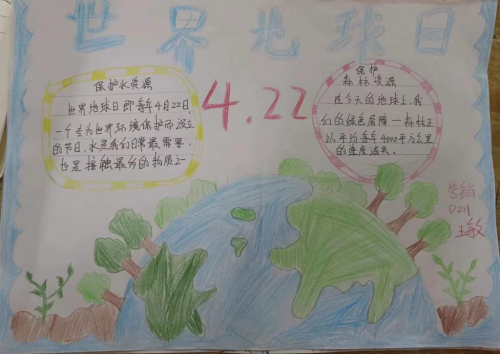 世界地球日
4.22
保护水资源
世界地球日即每年4月22日,
一个专为世界环境保护而设立
的节日,水是我们日常最需要,
也是接触最多的物质之一
保护
森林资源
在今天的地球上,我
们的绿色屏障一森林正
以平均每年4000平方公里
的速度消失。
营销
D211
王敏